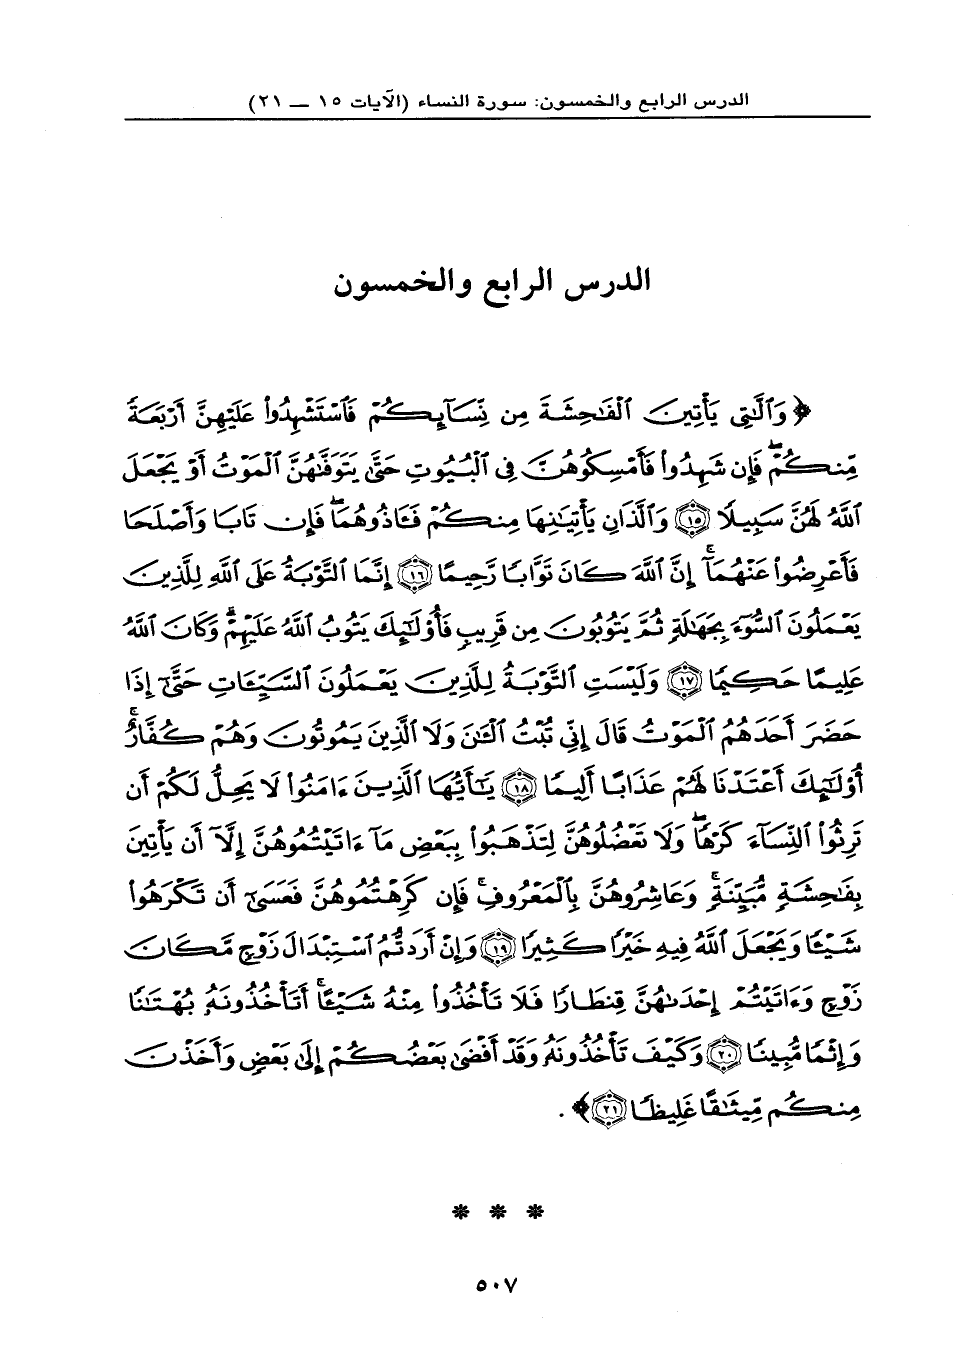 الدرس الرابع والخمسون: سورة النساء (الآيات ١٥ ــ ٢١)
الدرس الرابع والخمسون
﴿ وَٱلَّٰتِى يَأْتِينَ ٱلْفَٰحِشَةَ مِن نِّسَآئِكُمْ فَٱسْتَشْهِدُوا۟ عَلَيْهِنَّ أَرْبَعَةً
مِّنكُمْ ۖ فَإِن شَهِدُوا۟ فَأَمْسِكُوهُنَّ فِى ٱلْبُيُوتِ حَتَّىٰ يَتَوَفَّىٰهُنَّ ٱلْمَوْتُ أَوْ يَجْعَلَ
ٱللَّهُ لَهُنَّ سَبِيلًا ١٥ وَٱلَّذَانِ يَأْتِيَٰنِهَا مِنكُمْ فَـَٔاذُوهُمَا ۖ فَإِن تَابَا وَأَصْلَحَا
فَأَعْرِضُوا۟ عَنْهُمَآ ۗ إِنَّ ٱللَّهَ كَانَ تَوَّابًا رَّحِيمًا ١٦ إِنَّمَا ٱلتَّوْبَةُ عَلَى ٱللَّهِ لِلَّذِينَ
يَعْمَلُونَ ٱلسُّوٓءَ بِجَهَٰلَةٍ ثُمَّ يَتُوبُونَ مِن قَرِيبٍ فَأُو۟لَٰٓئِكَ يَتُوبُ ٱللَّهُ عَلَيْهِمْ ۗ وَكَانَ ٱللَّهُ
عَلِيمًا حَكِيمًا ١٧ وَلَيْسَتِ ٱلتَّوْبَةُ لِلَّذِينَ يَعْمَلُونَ ٱلسَّيِّـَٔاتِ حَتَّىٰٓ إِذَا
حَضَرَ أَحَدَهُمُ ٱلْمَوْتُ قَالَ إِنِّى تُبْتُ ٱلْـَٰٔنَ وَلَا ٱلَّذِينَ يَمُوتُونَ وَهُمْ كُفَّارٌ ۚ
أُو۟لَٰٓئِكَ أَعْتَدْنَا لَهُمْ عَذَابًا أَلِيمًا ١٨ يَٰٓأَيُّهَا ٱلَّذِينَ ءَامَنُوا۟ لَا يَحِلُّ لَكُمْ أَن
تَرِثُوا۟ ٱلنِّسَآءَ كَرْهًا ۖ وَلَا تَعْضُلُوهُنَّ لِتَذْهَبُوا۟ بِبَعْضِ مَآ ءَاتَيْتُمُوهُنَّ إِلَّآ أَن يَأْتِينَ
بِفَٰحِشَةٍ مُّبَيِّنَةٍ ۚ وَعَاشِرُوهُنَّ بِٱلْمَعْرُوفِ ۚ فَإِن كَرِهْتُمُوهُنَّ فَعَسَىٰٓ أَن تَكْرَهُوا۟
شَيْـًٔا وَيَجْعَلَ ٱللَّهُ فِيهِ خَيْرًا كَثِيرًا ١٩ وَإِنْ أَرَدتُّمُ ٱسْتِبْدَالَ زَوْجٍ مَّكَانَ
زَوْجٍ وَءَاتَيْتُمْ إِحْدَىٰهُنَّ قِنطَارًا فَلَا تَأْخُذُوا۟ مِنْهُ شَيْـًٔا ۚ أَتَأْخُذُونَهُۥ بُهْتَٰنًا
وَإِثْمًا مُّبِينًا ٢٠ وَكَيْفَ تَأْخُذُونَهُۥ وَقَدْ أَفْضَىٰ بَعْضُكُمْ إِلَىٰ بَعْضٍ وَأَخَذْنَ
مِنكُم مِّيثَٰقًا غَلِيظًا ٢١ ﴾ .
* * *
٥٠٧